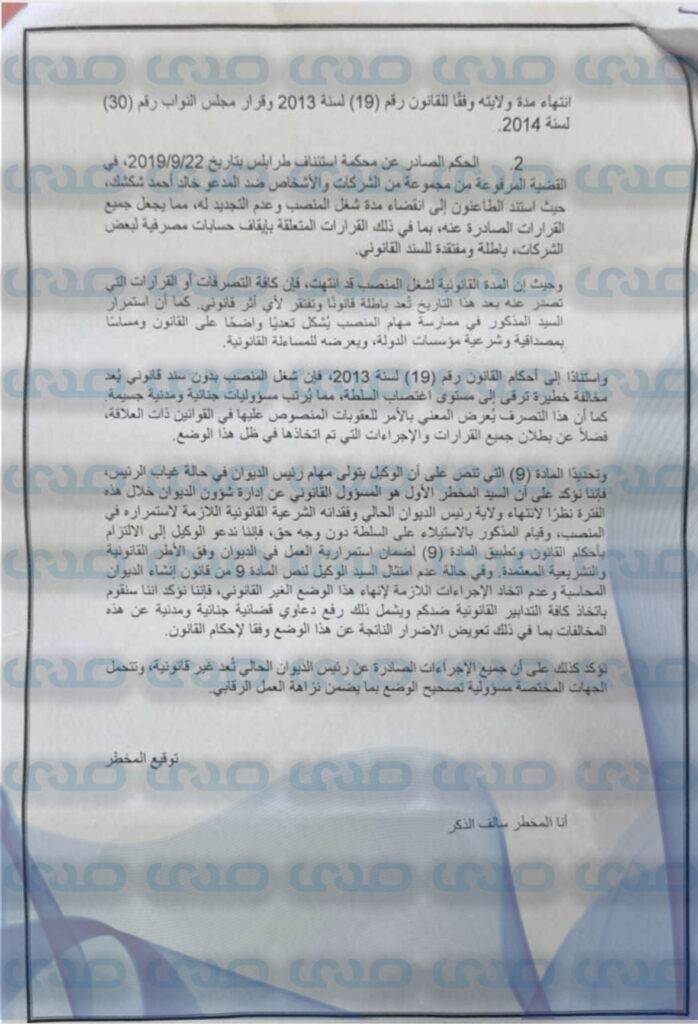 انتهاء مدة ولايته وفقًا للقانون رقم (19) لسنة 2013 وقرار مجلس النواب رقم (30)
لسنة 2014.
2. الحكم الصادر عن محكمة استئناف طرابلس بتاريخ 2019/9/22، في
القضية المرفوعة من مجموعة من الشركات والأشخاص ضد المدعو خالد أحمد شكشك،
حيث استند الطاعنون إلى انقضاء مدة شغل المنصب وعدم التجديد له، مما يجعل جميع
القرارات الصادرة عنه، بما في ذلك القرارات المتعلقة بإيقاف حسابات مصرفية لبعض
الشركات، باطلة ومفتقدة للسند القانوني.
وحيث إن المدة القانونية لشغل المنصب قد انتهت، فإن كافة التصرفات أو القرارات التي
تصدر عنه بعد هذا التاريخ تُعد باطلة قانونًا وتفتقر لأي أثر قانوني. كما أن استمرار
السيد المذكور في ممارسة مهام المنصب يُشكل تعديًا واضحًا على القانون ومساسًا
بمصداقية وشرعية مؤسسات الدولة، ويعرضه للمساءلة القانونية.
واستنادًا إلى أحكام القانون رقم (19) لسنة 2013، فإن شغل المنصب بدون سند قانوني يُعد
مخالفة خطيرة ترقى إلى مستوى اغتصاب السلطة، مما يُرتب مسؤوليات جنائية ومدنية جسيمة.
كما أن هذا التصرف يُعرض المعني بالأمر للعقوبات المنصوص عليها في القوانين ذات العلاقة،
فضلاً عن بطلان جميع القرارات والإجراءات التي تم اتخاذها في ظل هذا الوضع.
وتحديدًا المادة (9) التي تنص على أن الوكيل يتولى مهام رئيس الديوان في حالة غياب الرئيس،
فإننا نؤكد على أن السيد المخطر الأول هو المسؤول القانوني عن إدارة شؤون الديوان خلال هذه
الفترة نظرًا لانتهاء ولاية رئيس الديوان الحالي وفقدانه الشرعية القانونية اللازمة لاستمراره في
المنصب، وقيام المذكور بالاستيلاء على السلطة دون وجه حق، فإننا ندعو الوكيل إلى الالتزام
بأحكام القانون وتطبيق المادة (9) لضمان استمرارية العمل في الديوان وفق الأطر القانونية
والتشريعية المعتمدة. وفي حالة عدم امتثال السيد الوكيل لنص المادة 9 من قانون إنشاء الديوان
المحاسبة وعدم اتخاد الإجراءات اللازمة لإنهاء هذا الوضع الغير القانوني، فإننا نؤكد اننا سنقوم
باتخاذ كافة التدابير القانونية ضدكم ويشمل ذلك رفع دعاوي قضائية جنائية ومدنية عن هذه
المخالفات بما في ذلك تعويض الاضرار الناتجة عن هذا الوضع وفقا لإحكام القانون.
نؤكد كذلك على أن جميع الإجراءات الصادرة عن رئيس الديوان الحالي تُعد غير قانونية، وتتحمل
الجهات المختصة مسؤولية تصحيح الوضع بما يضمن نزاهة العمل الرقابي.
توقيع المخطر
أنا المخطر سالف الذكر